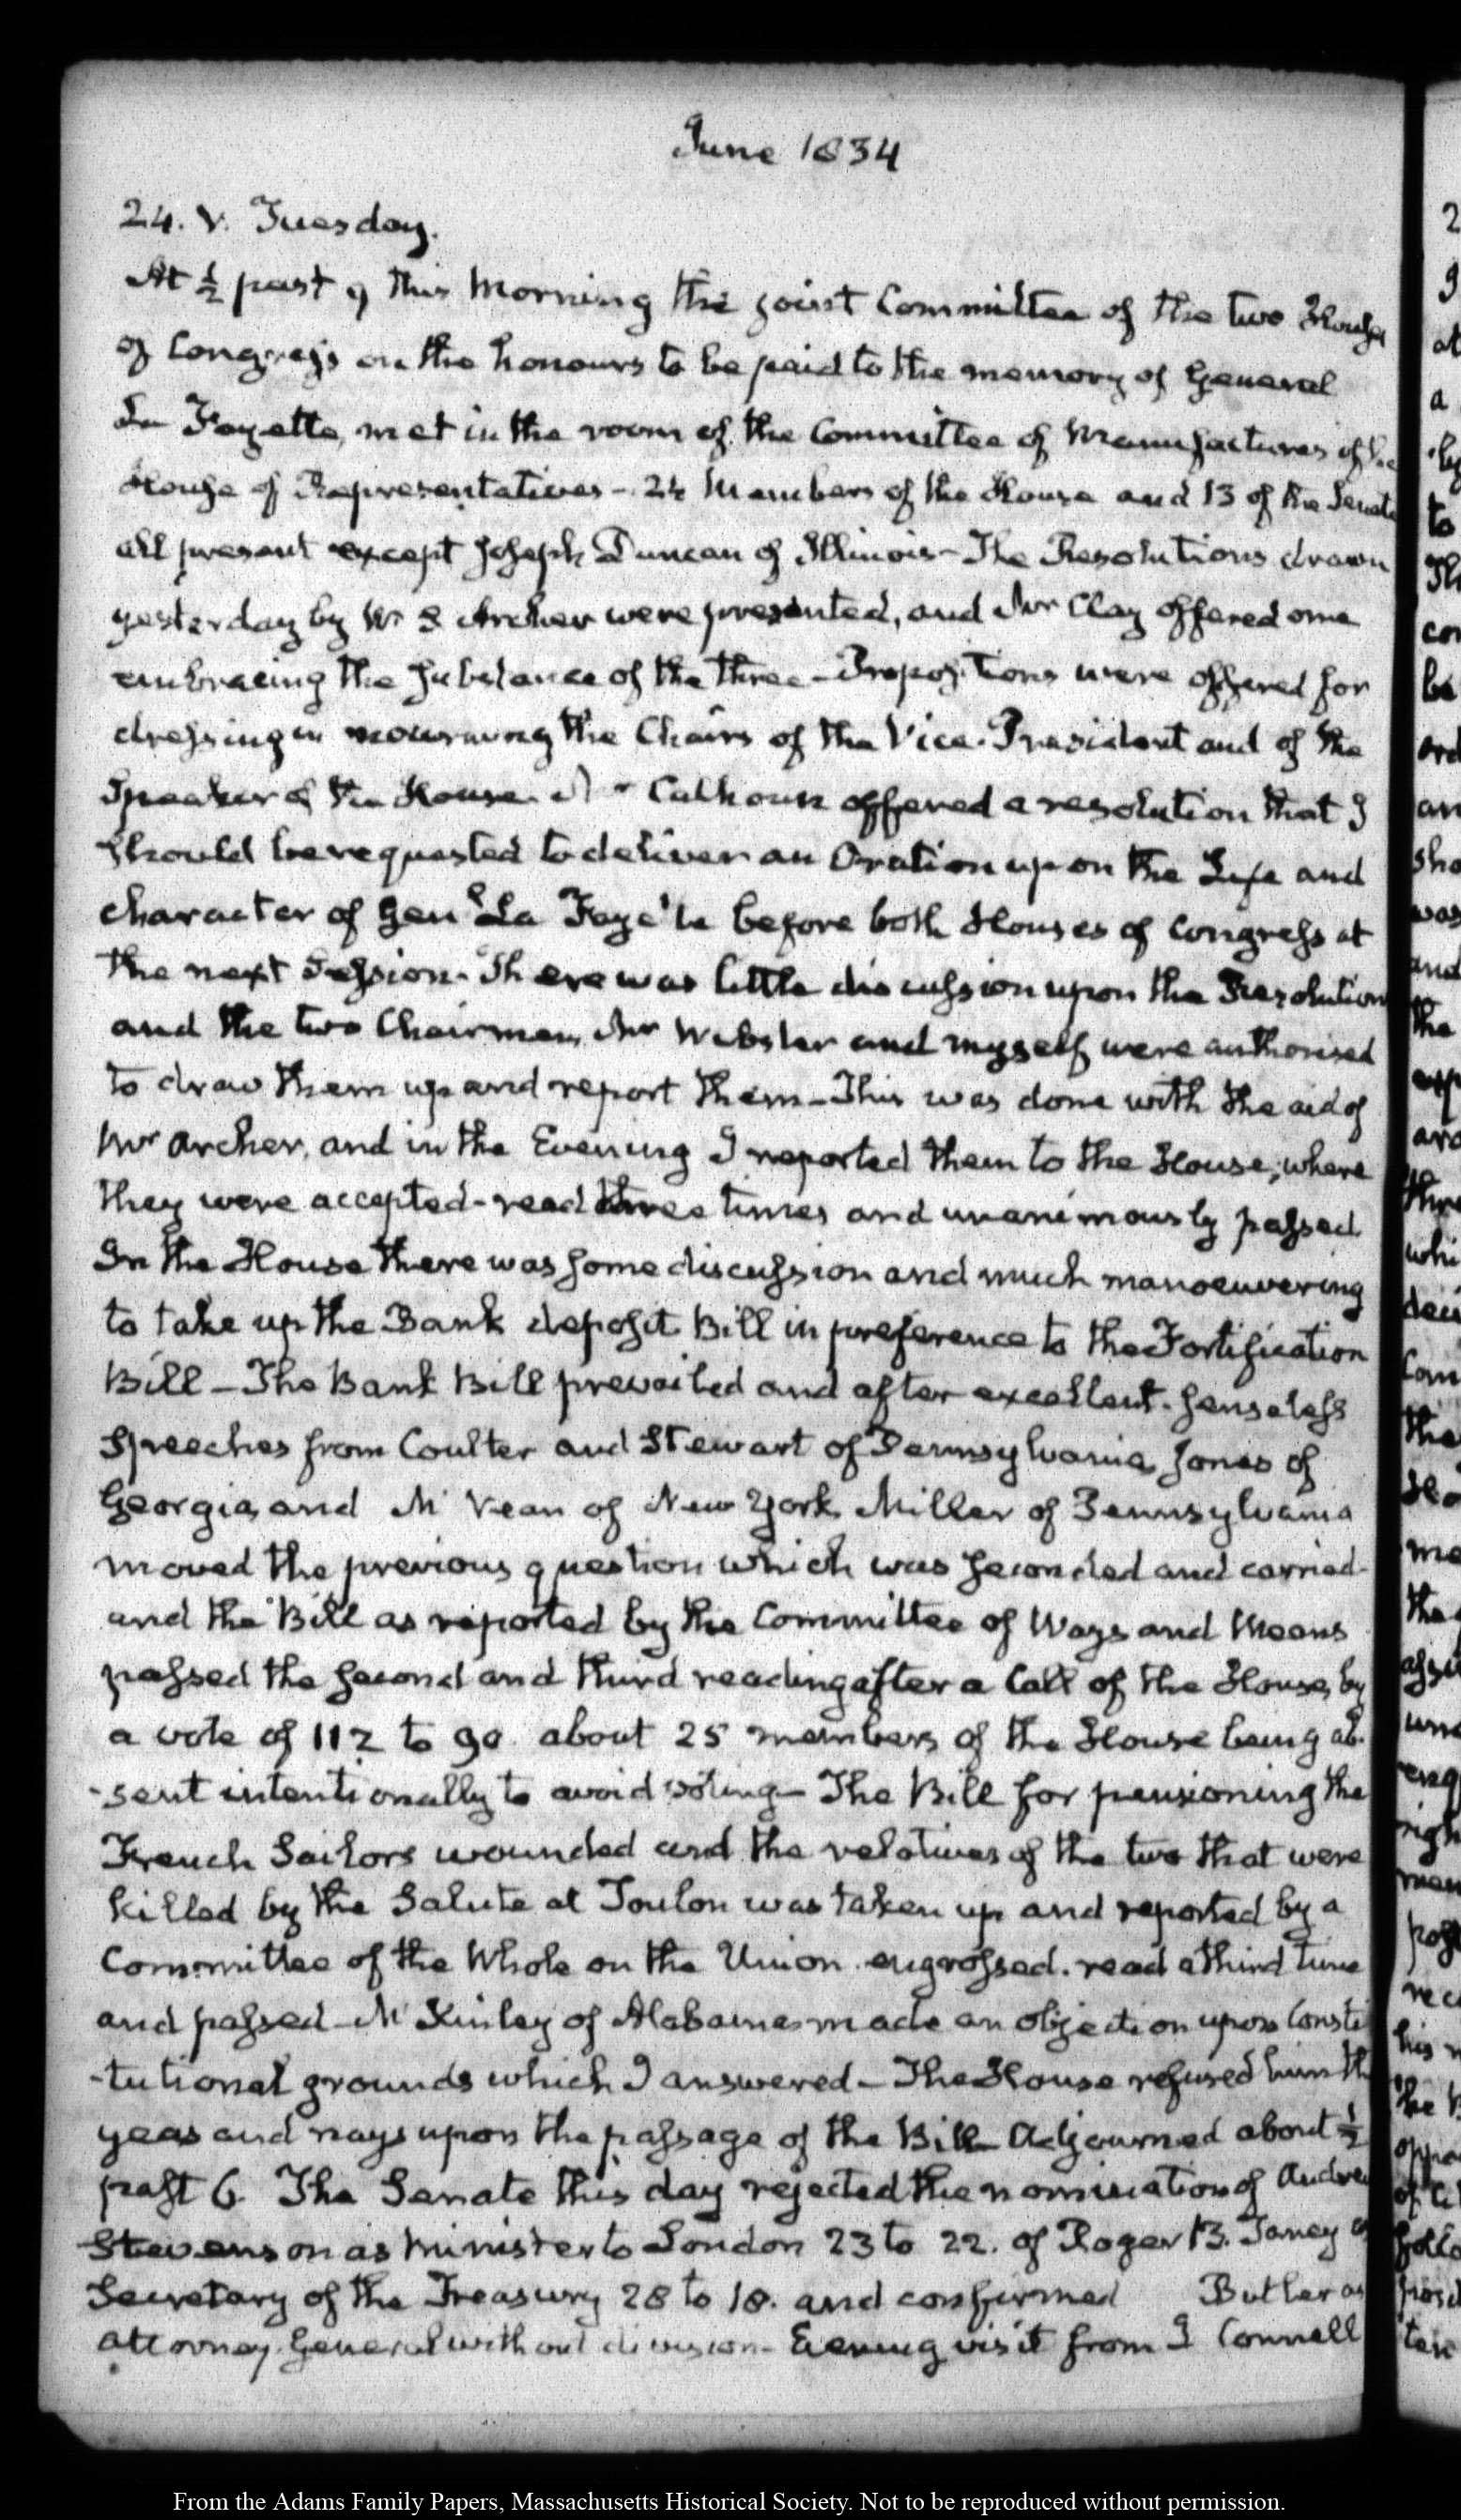 June 1834
24. V. Tuesday.
At ½ past 9 this Morning the joint Committee of the two Houses
of Congress on the honours to be paid to the memory of General
La Fayette, met in the room of the Committee of Manufactures of the
House of Representatives – 24 Members of the House and 13 of the Senate
all present except Joseph Duncan of Illinois – The Resolutions drawn
yesterday by W. S. Archer were presented, and Mr Clay offered one
embracing the substance of the three – Propositions were offered for
dressing in mourning the Chairs of the Vice-President and of the
Speaker of the House. Mr Calhoun offered a resolution that I
should be requested to deliver an Oration upon the Life and
character of Genl La Faye'te before both Houses of Congress at
the next Session. There was little discussion upon the Resolutions
and the two Chairmen, Mr Webster and myself were authorised
to draw them up and report them – This was done with the aid of
Mr Archer, and in the Evening I reported them to the House, where
they were accepted – read three times and unanimously passed
In the House there was some discussion and much manoeuvering
to take up the Bank deposit Bill in preference to the Fortification
Bill – The Bank Bill prevailed and after excellent senseless
Speeches from Coulter and Stewart of Pennsylvania, Jones of
Georgia, and Mc Vean of New York, Miller of Pennsylvania
moved the previous question which was seconded and carried
and the Bill as reported by the Committee of Ways and Means
passed the second and third reading after a Call of the House, by
a vote of 112 to 90. about 25 members of the House being ab-
-sent intentionally to avoid voting – The Bill for pensioning the
French Sailors wounded and the relatives of the two that were
killed by the Salute at Toulon was taken up and reported by a
Committee of the Whole on the Union. engrossed. read a third time
and passed – Mc Kinley of Alabama made an objection upon Consti
-tutional grounds which I answered – The House refused him the
yeas and nays upon the passage of the Bill – Adjourned about ½
past 6. The Senate this day rejected the nomination of Andrew
Stevenson as Minister to London 23 to 22. of Roger B. Taney as
Secretary of the Treasury 28 to 18. and confirmed Butler as
Attorney General without division – Evening visit from J Connell
From the Adams Family Papers, Massachusetts Historical Society. Not to be reproduced without permission.